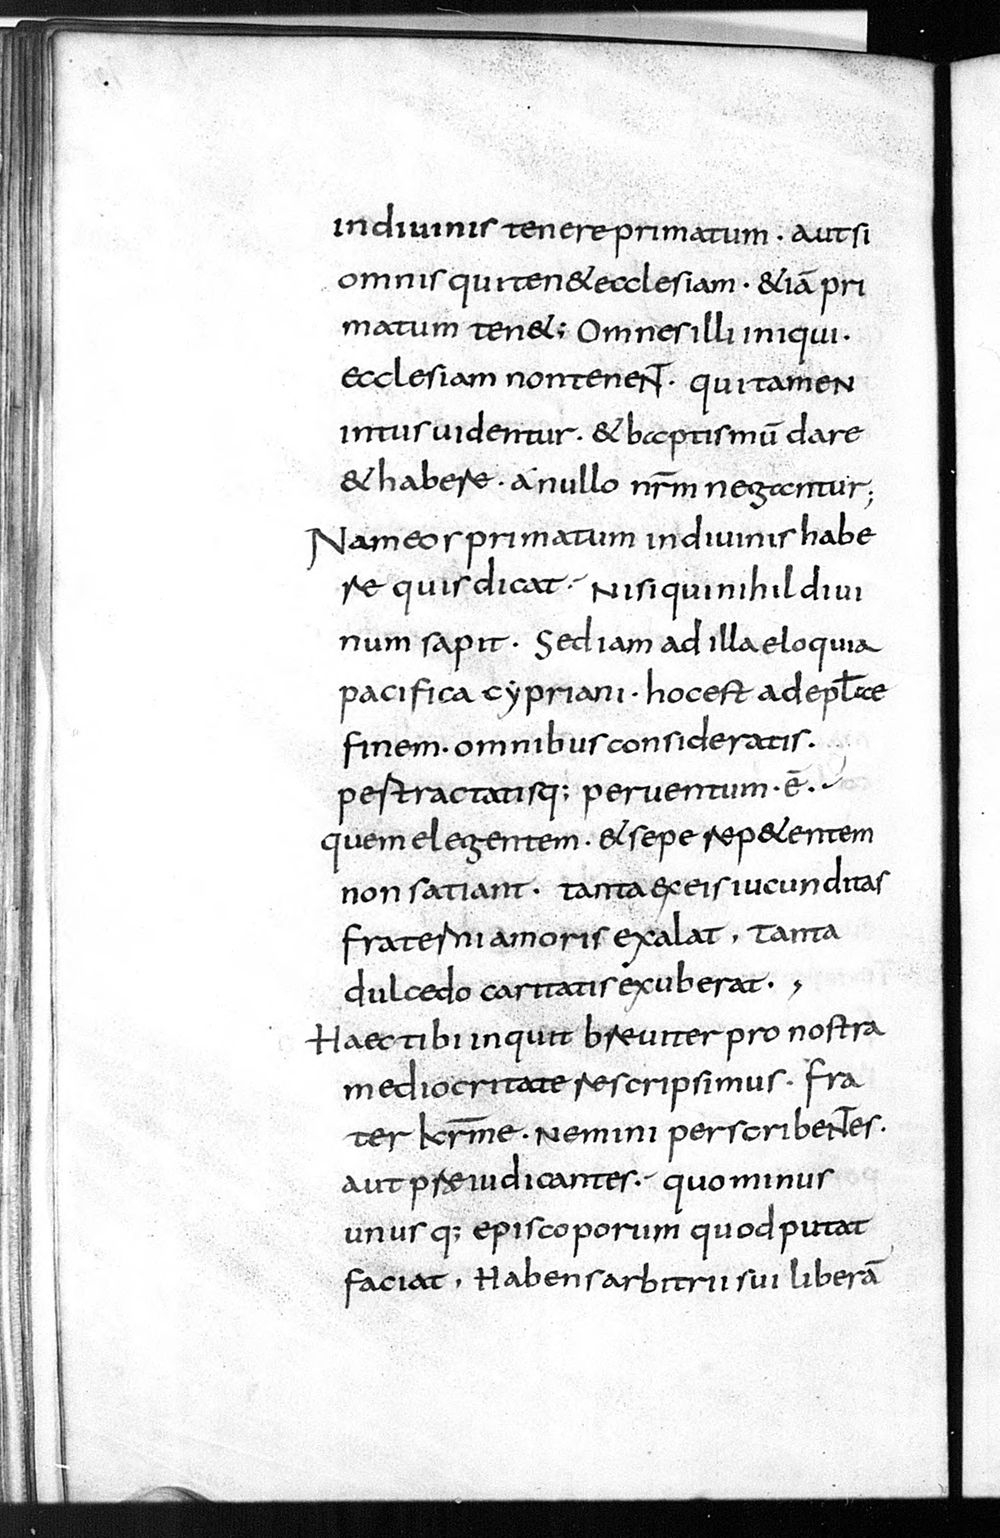 in diuinis tenere primatum · aut si
omnis qui ten& ecclesiam · &iā pri
matum ten&; Omnes illi iniqui ·
ecclesiam non tenent̄ · qui tamen
intus uidentur · & baptismū dare
& habere · a nullo nr̄m negantur;
Nam eos primatum in diuinis habe
re quis dicat · nisi qui nihil diui
num sapit · Sed iam ad illa eloquia
pacifica cẏpriani · hoc est ad epl̄ae
finem · omnibus consideratis ·
pestractatisq; peruentum · ē ·
quem elegentem · & sepe rep&entem
non satiant · tanta ex eis iucunditas
fraterni amoris exalat , tanta
dulcedo caritatis exuberat · ,
Haec tibi inquit breuiter pro nostra
mediocritate rescripsimus · fra
ter kr̄me · nemini perscribent̄es ·
aut praeiudicantes · quo minus
unusq; episcoporum quod putat
faciat , Habens arbitrii sui liberā